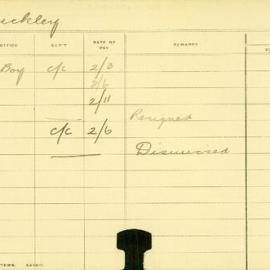 uckley
OFFICE DEP'T RATE OF PAY REMARKS
Boy c/c 2/3
2/6
2/11
Resigned
c/c 2/6
Dismissed